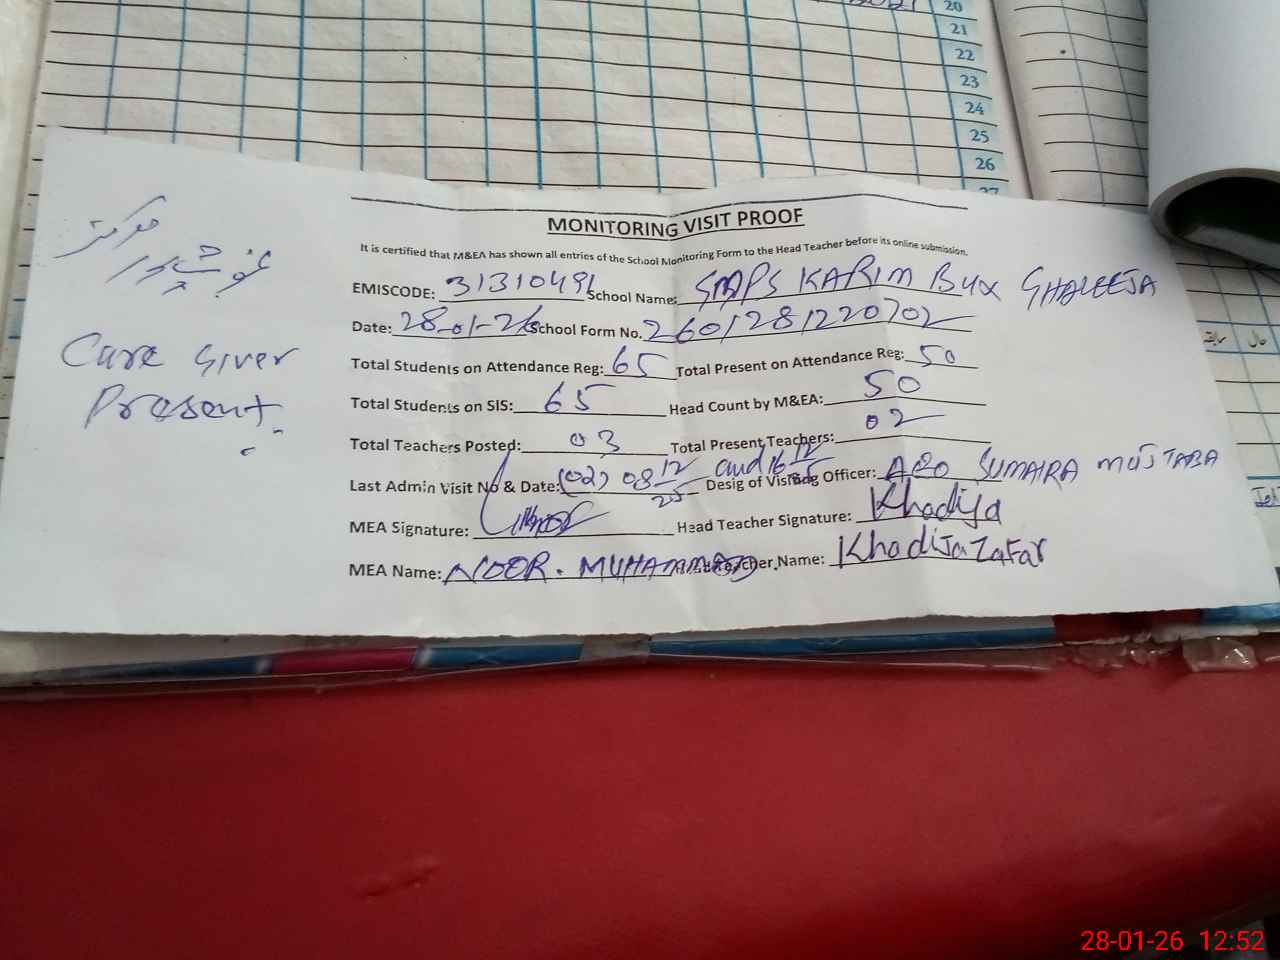 20
21
22
23
24
25
26
27
MONITORING VISIT PROOF
It is certified that M&EA has shown all entries of the School Monitoring Form to the Head Teacher before its online submission.
EMISCODE: 31310491 School Name: SMPS KARIM BUX GHALEEJA
Date: 28-01-26 School Form No. 2601281220702
Total Students on Attendance Reg: 65 Total Present on Attendance Reg: 50
Total Students on SIS: 65 Head Count by M&EA: 50
Total Teachers Posted: 03 Total Present Teachers: 02
Last Admin Visit No & Date: (02) 08 12/25 and 16 12/25 Desig of Visiting Officer: AEO SUMAIRA MUJTABA
MEA Signature: Head Teacher Signature: Khadija
MEA Name: NOOR. MUHAMMAD Teacher Name: Khadija Zafar
Care Giver
Present
سابقہ حال
28-01-26 12:52